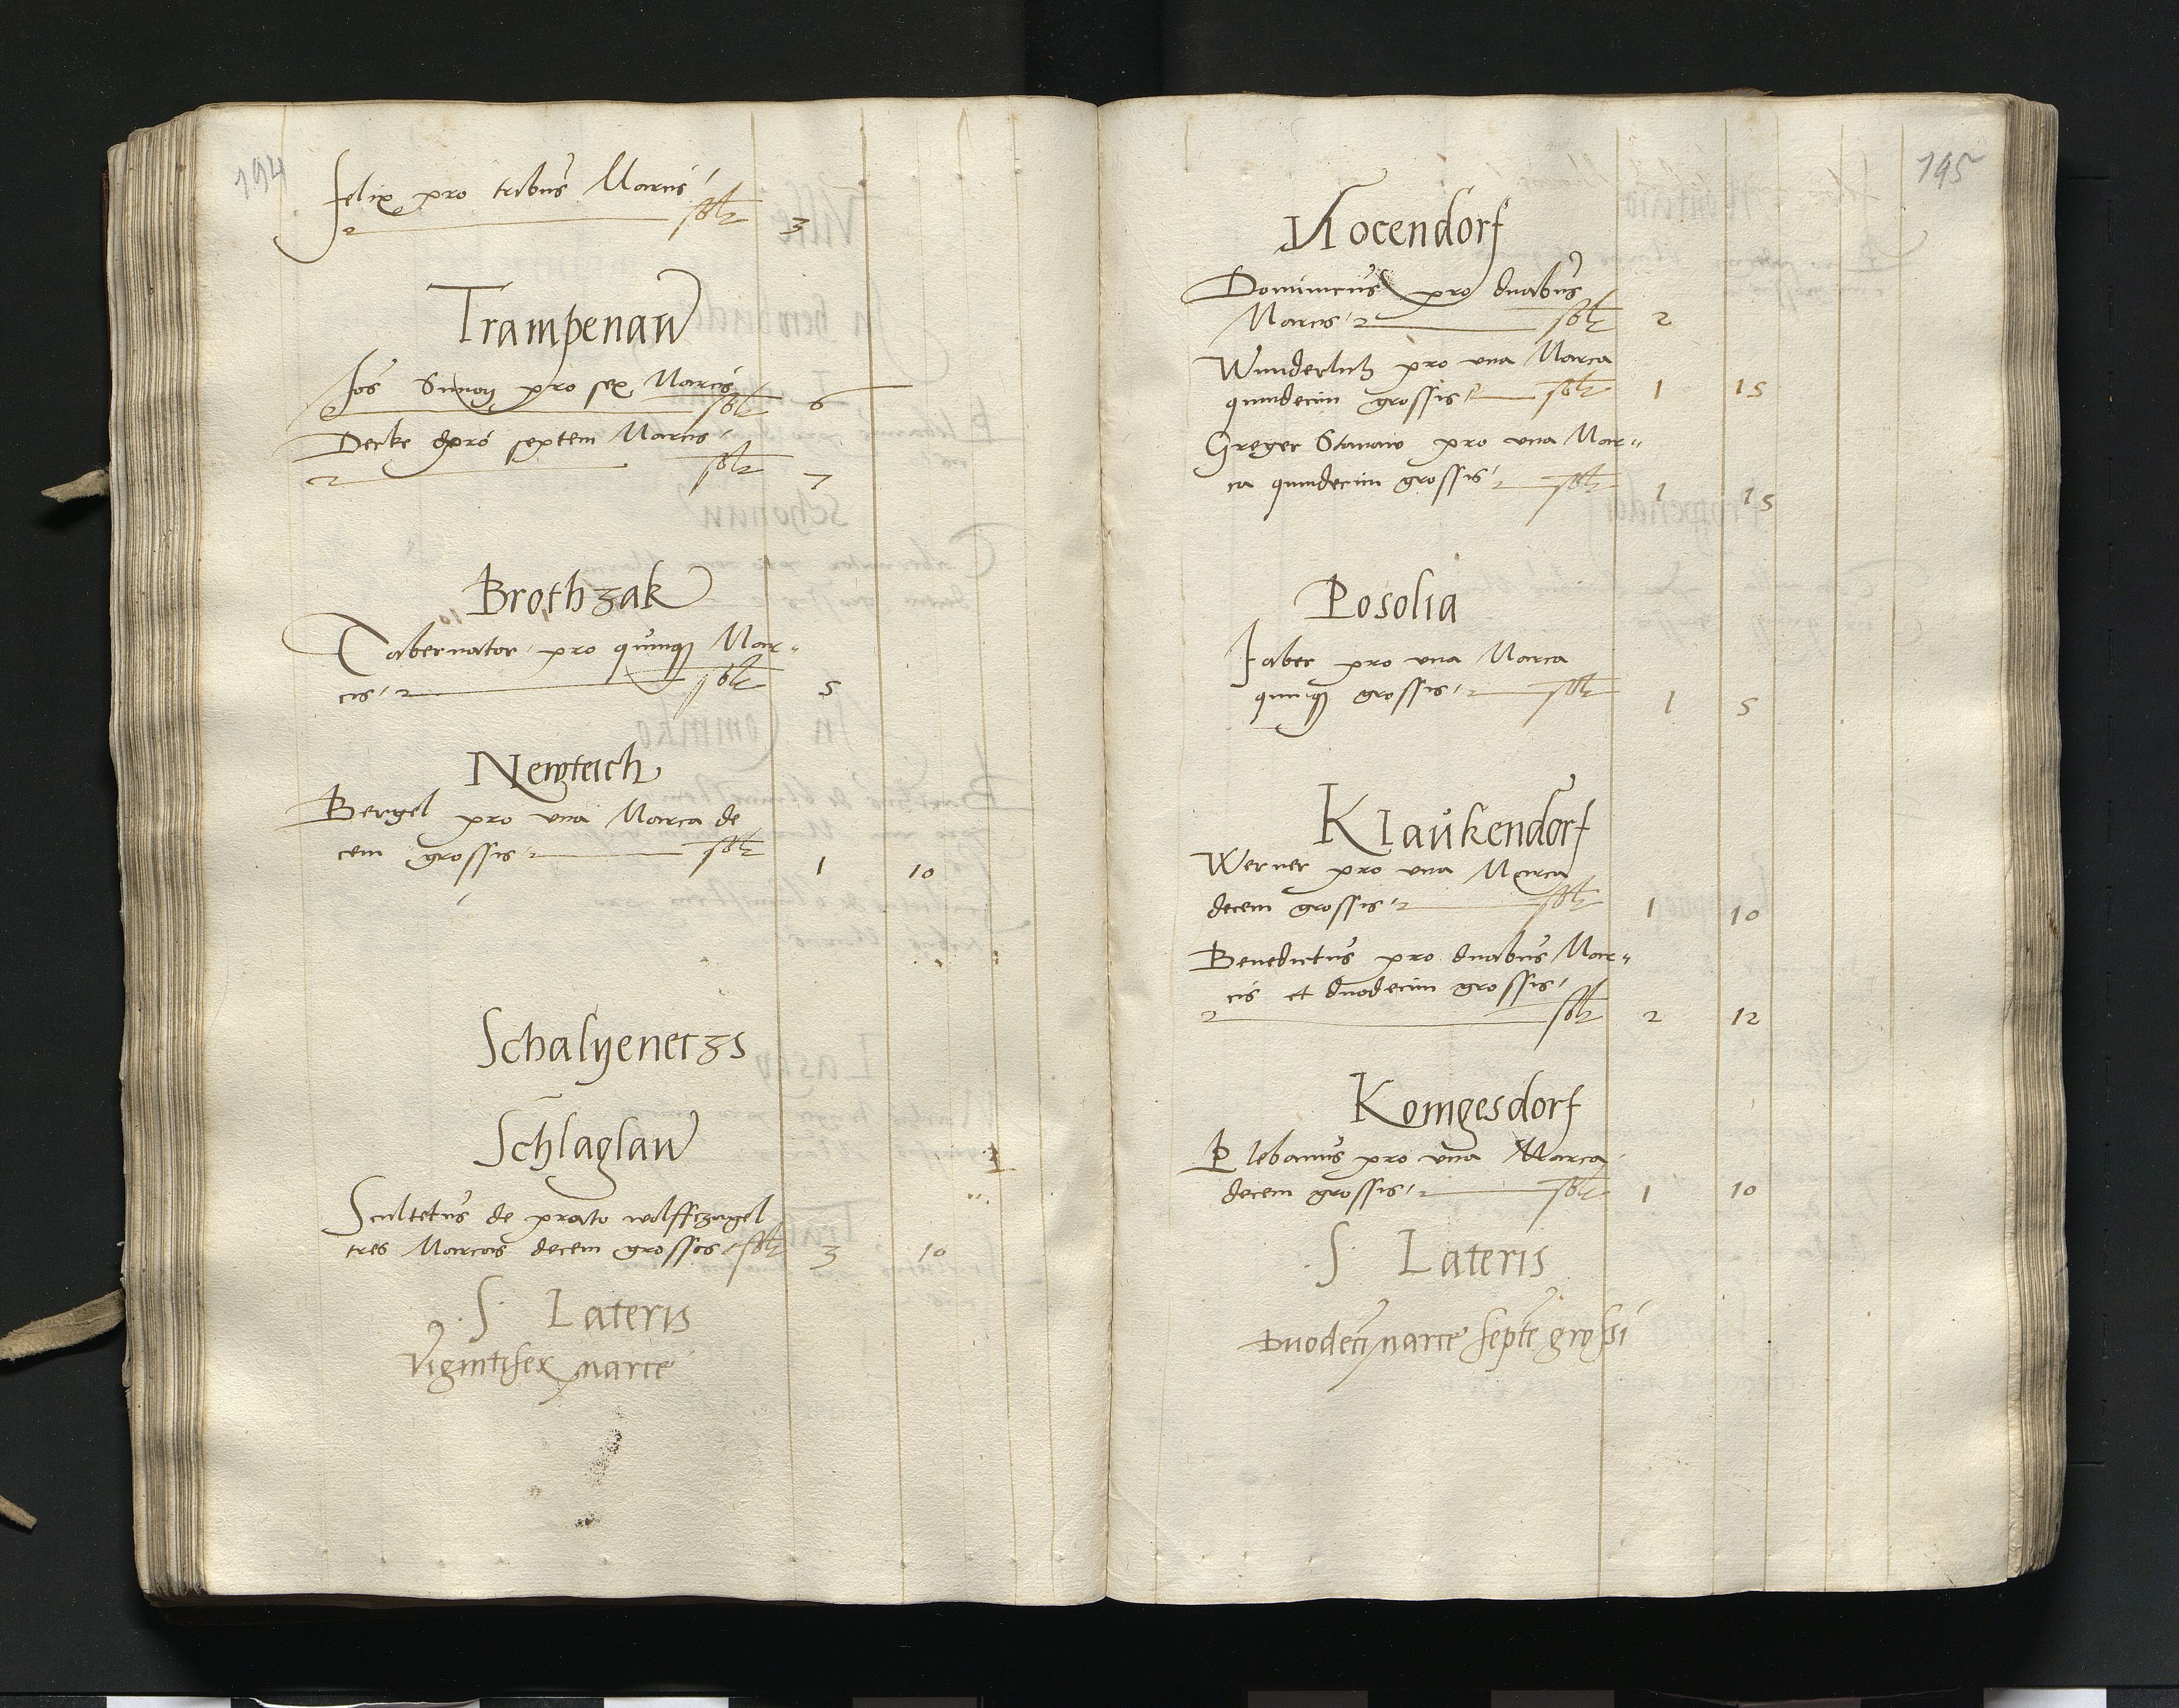 194
Felix pro tribus Marcis
solt 3
Trampenaw
Jos Simon pro sex Marcis
solt 6
Decke pro septem Marcis
solt 7
Brothzak
Tabernator pro quinq Mar„
cis solt 5
Newteich
Bergel pro una Marca de
cem grossis solt 1 10
Schalyenetzs
Schlaglaw
Scultetus de prato wolffczagel
tres Marcas decem grossos solt 3 10
S Lateris
Vigintisex marce
195
Nocendorf
Dominicus pro duabus
Marcis solt 2
Wunderlich pro una Marca
quindecim grossis solt 1 15
Greger Stanaw pro una Mar„
ca quindecim grossis solt 1 15
Posolia
Faber pro una Marca
quinq grossis solt 1 5
Klaukendorf
Werner pro una Marca
decem grossis solt 1 10
Benedictus pro duabus Mar„
cis et duodecim grossis
solt 2 12
Konigesdorf
Plebanus pro una Marca
decem grossis solt 1 10
S Lateris
Duodeci marce septe grossi